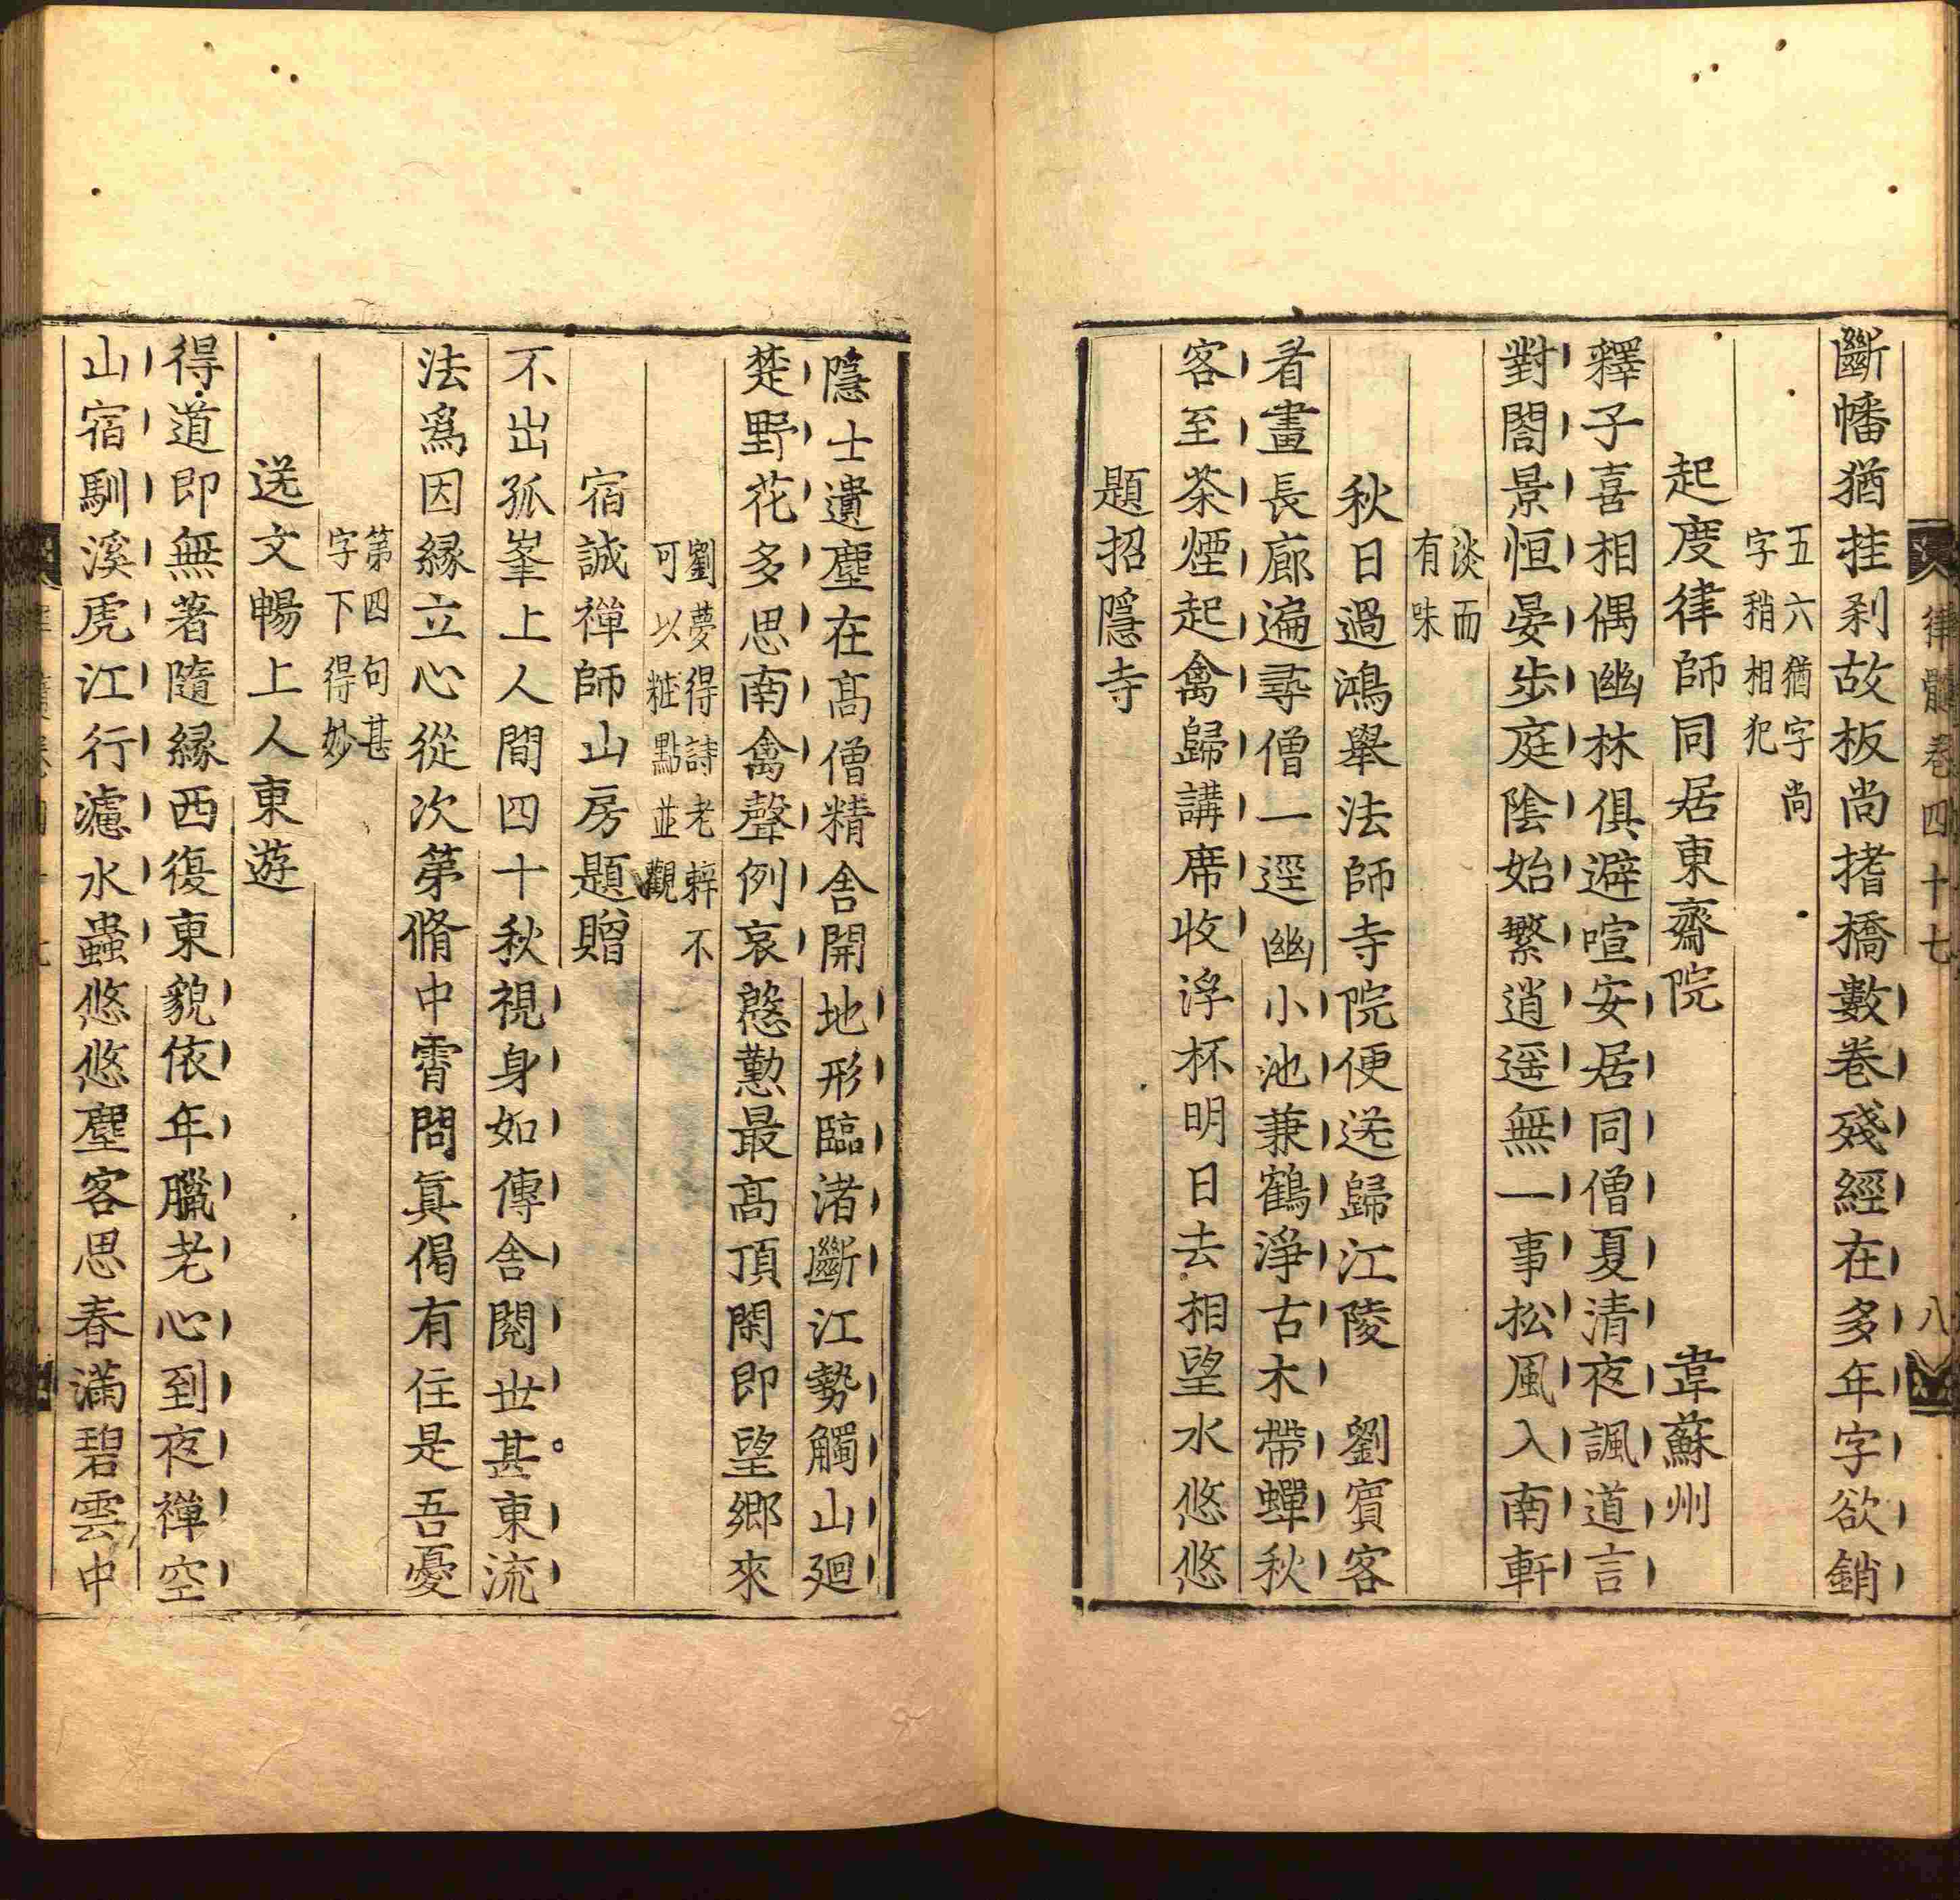 律髓卷四十七 八
斷幡猶挂刹故板尚搘橋數卷殘經在多年字欲銷
五六猶字尚
字稍相犯
起度律師同居東齋院 韋蘇州
釋子喜相偶幽林俱避喧安居同僧夏清夜諷道言
對閤景恒晏步庭陰始繁逍遥無一事松風入南軒
淡而
有味
秋日過鴻舉法師寺院便送歸江陵 劉賓客
看畫長廊遍尋僧一逕幽小池兼鶴淨古木帶蟬秋
客至茶煙起禽歸講席收浮杯明日去相望水悠悠
題招隱寺
隱士遺塵在髙僧精舍開地形臨渚斷江勢觸山廻
楚野花多思南禽聲例哀慇懃最髙頂閑即望鄉來
劉夢得詩老辣不
可以粧點並觀
宿誠禪師山房題贈
不出孤峯上人間四十秋視身如傳舍閱世甚東流
法爲因縁立心從次第脩中霄問真偈有住是吾憂
第四句甚
字下得妙
送文暢上人東遊
得道即無著隨縁西復東貌依年臘老心到夜禪空
山宿馴溪虎江行濾水蟲悠悠塵客思春滿碧雲中